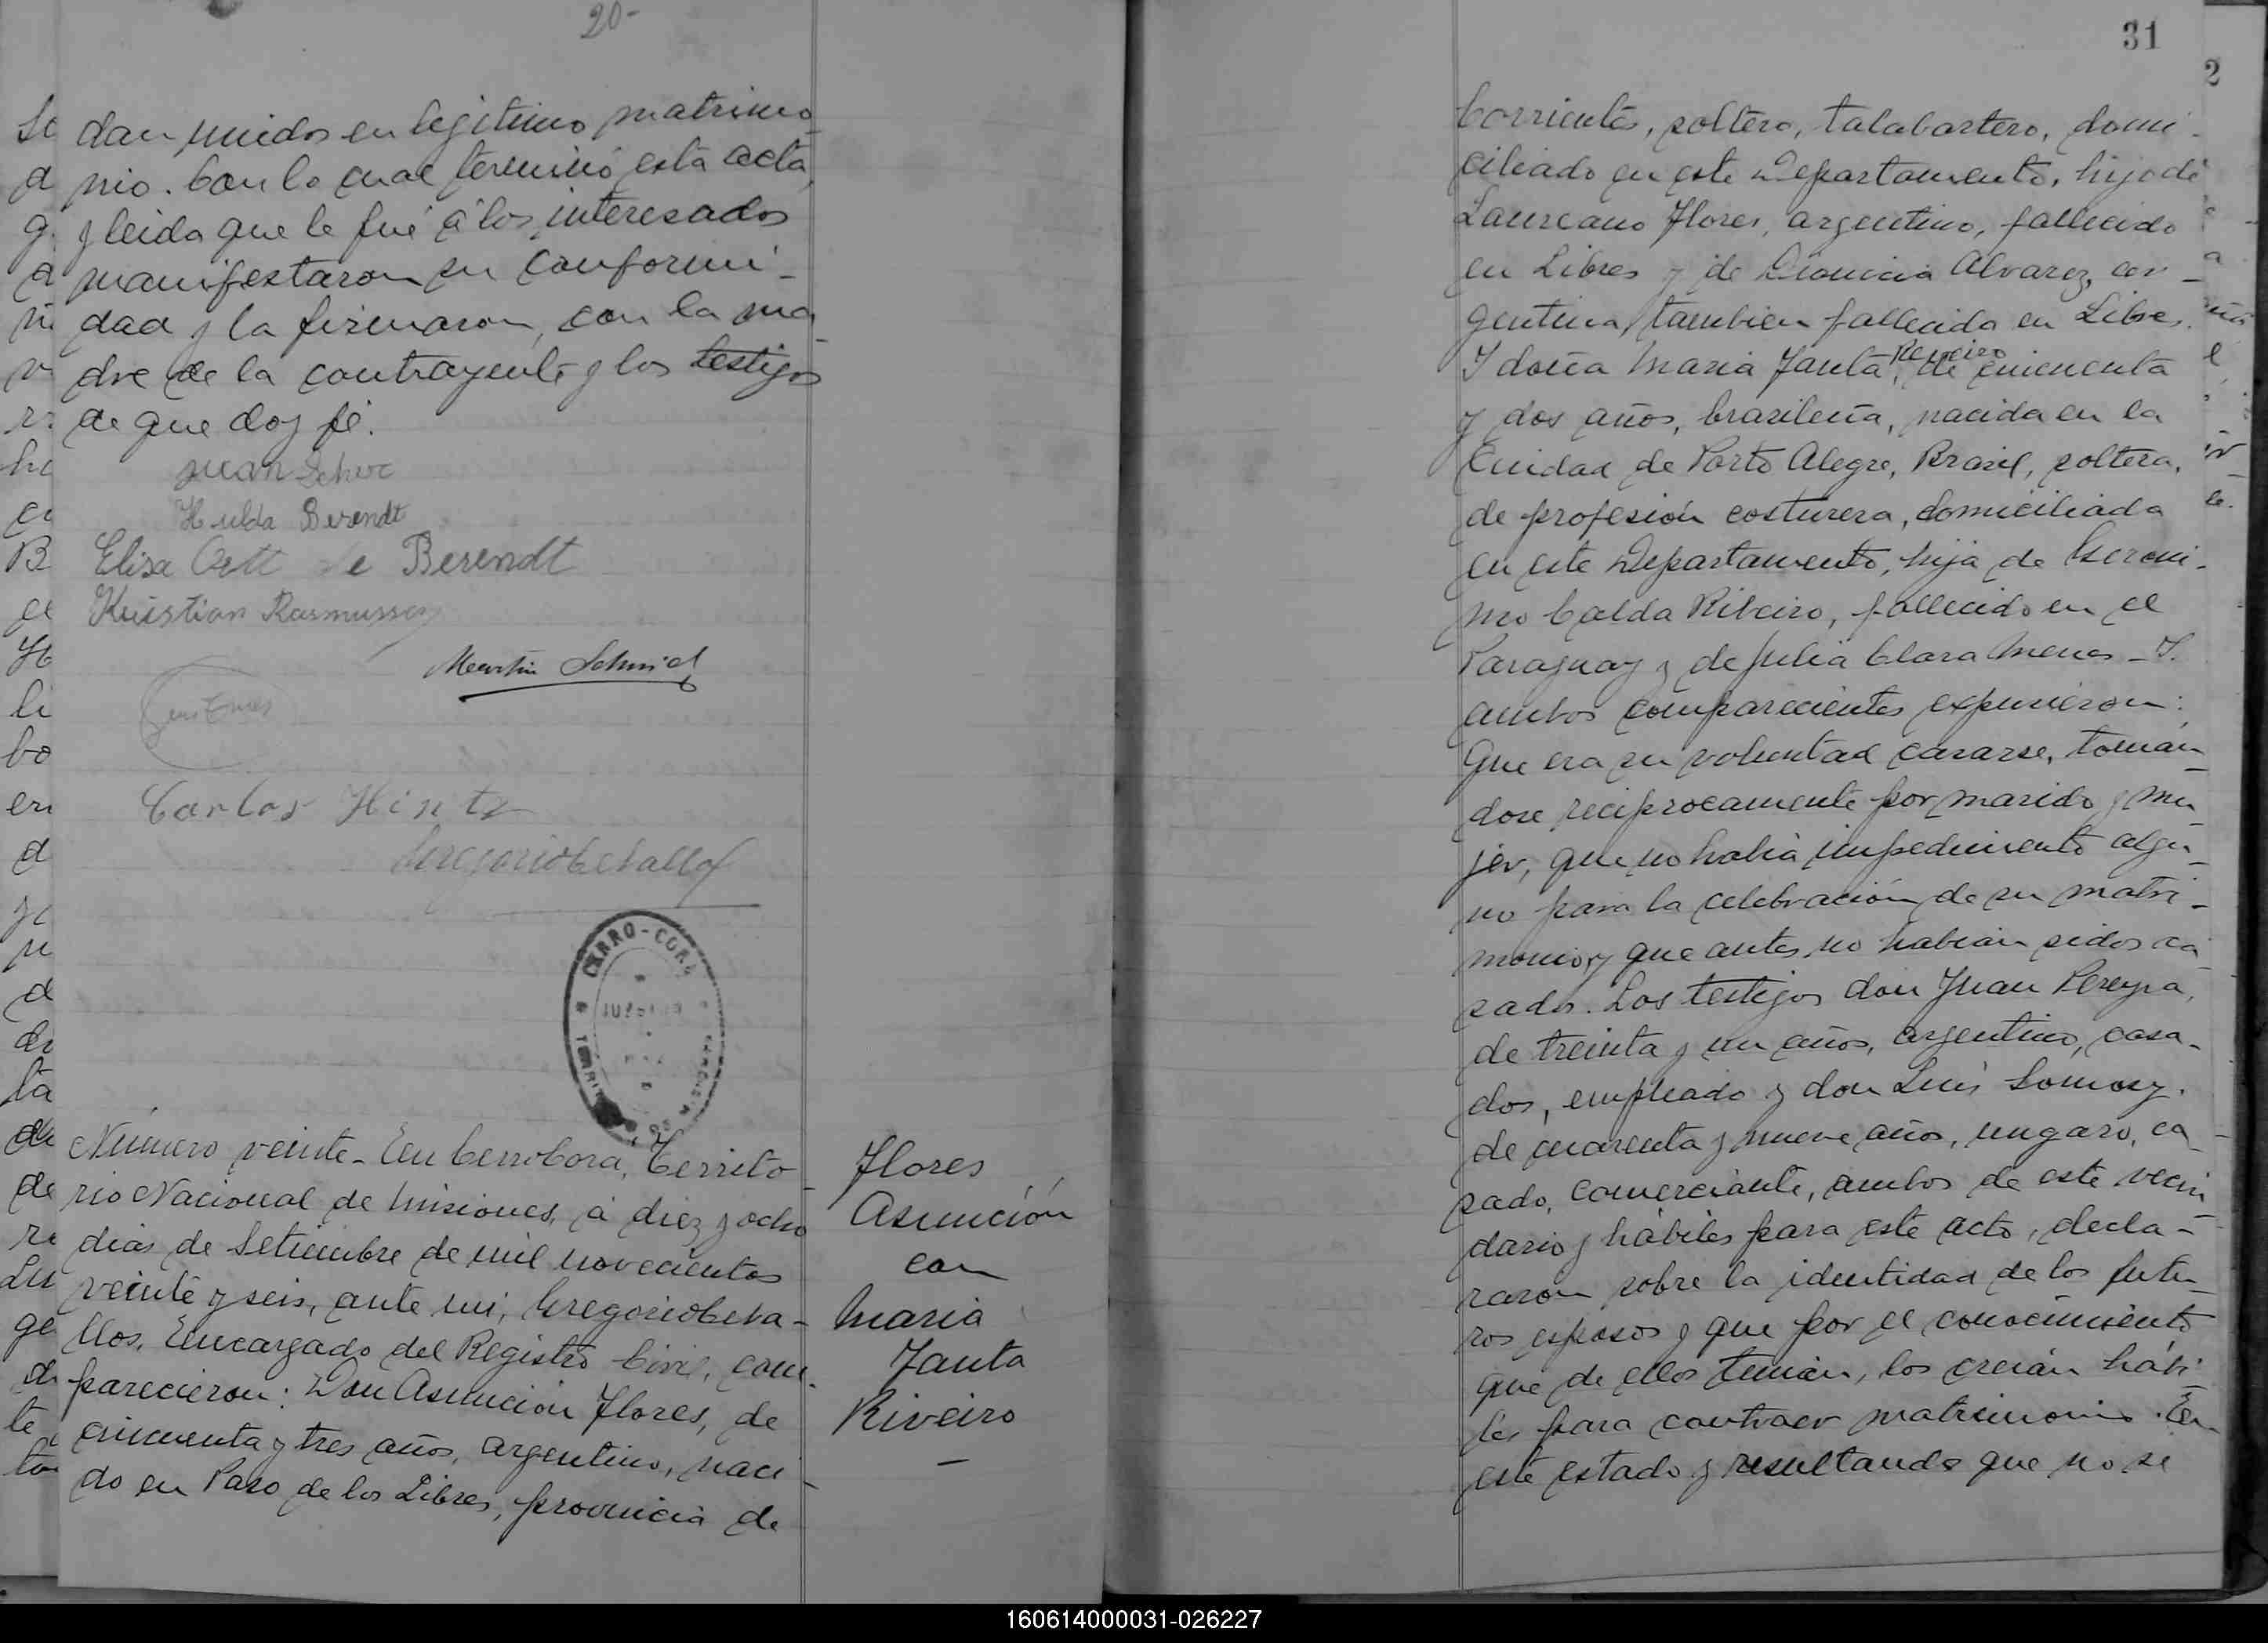 20-
dan unidos en legitimo matrimo
nio. Con lo cual terminó esta acta,
y leida que le fué á los interesados
manifestaron su conformi-
dad y la firmaron, con la ma
dre de la contrayente y los testigos
de que doy fé.
Juan
Hulda Berendt
Elisa Ott de Berendt
Kristian Rasmussen
Martin Schmid
Carlos Hintz
CERRO-CORÁ
Número veinte- En Cerro Cora, Territo-
rio Nacional de Misiones, á diez y ocho
dias de Setiembre de mil novecientos
veinte y seis, ante mi, Gregorio Ceva-
llos, Encargado del Registro Civil, com-
parecieron: Don Asunción Flores, de
cincuenta y tres años, argentino, naci-
do en Paso de los Libres, provincia de
Flores
Asunción
con
Maria
Janta
Riveiro
31
Corrientes, soltero, talabartero, domi-
ciliado en este Departamento, hijo de
Laureano Flores, argentino, fallecido
en Libres y de Dionicia Alvarez, ar-
gentina, tambien fallecida en Libres.
Y doña Maria Janta, Reveiro de cincuenta
y dos años, brasileña, nacida en la
Ciudad de Porto Alegre, Brasil, soltera,
de profesión costurera, domiciliada
en este Departamento, hija de Geroni-
mo Calda Ribeiro, fallecido en el
Paraguay y de Julia Clara Menes - Y.
ambos comparecientes expusieron:
Que era su voluntad casarse, tomán-
dose reciprocamente por marido y mu-
jer, que no habia impedimento algu-
no para la celebración de su matri-
monio y que antes no habian sidos ca-
sados. Los testigos don Juan Pereyra,
de treinta y un años, argentino, casa-
dos, empleado y don Luis Somosy.
de cuarenta y nueve años, ungaro, ca-
sado, comerciante, ambos de este vecin-
dario y hábiles para este acto, decla-
raron sobre la identidad de los futu-
ros esposos y que por el conocimiento
que de ellos tenian, los creián hábi-
les para contraer matrimonio. En
este estado y resultando que no se
160614000031-026227